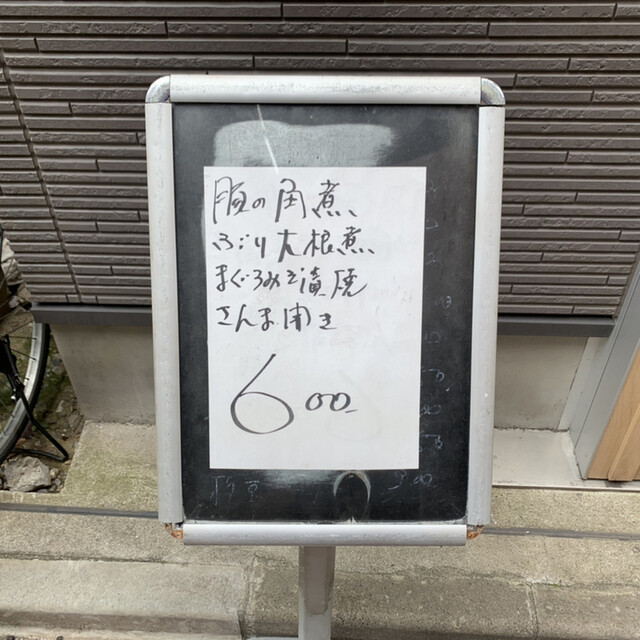 豚の角煮
ぶり大根煮
まぐろみそ漬焼
さんま開き
600